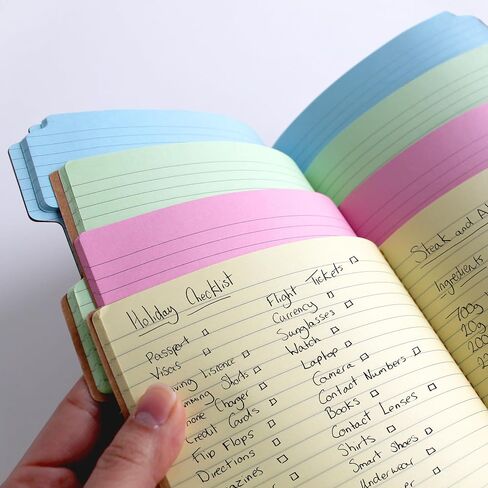 Holiday Checklist
Passport
Visas
iving Lisence
mming Shorts
hone Charger
Credit Cards
Flip Flops
Directions
gazines
Flight Tickets
Currency
Sunglasses
Watch
Laptop
Camera
Contact Numbers
Books
Contact Lenses
Shirts
Smart Shoes
Underwear
Steak and
Ingredients
700g
20g
200